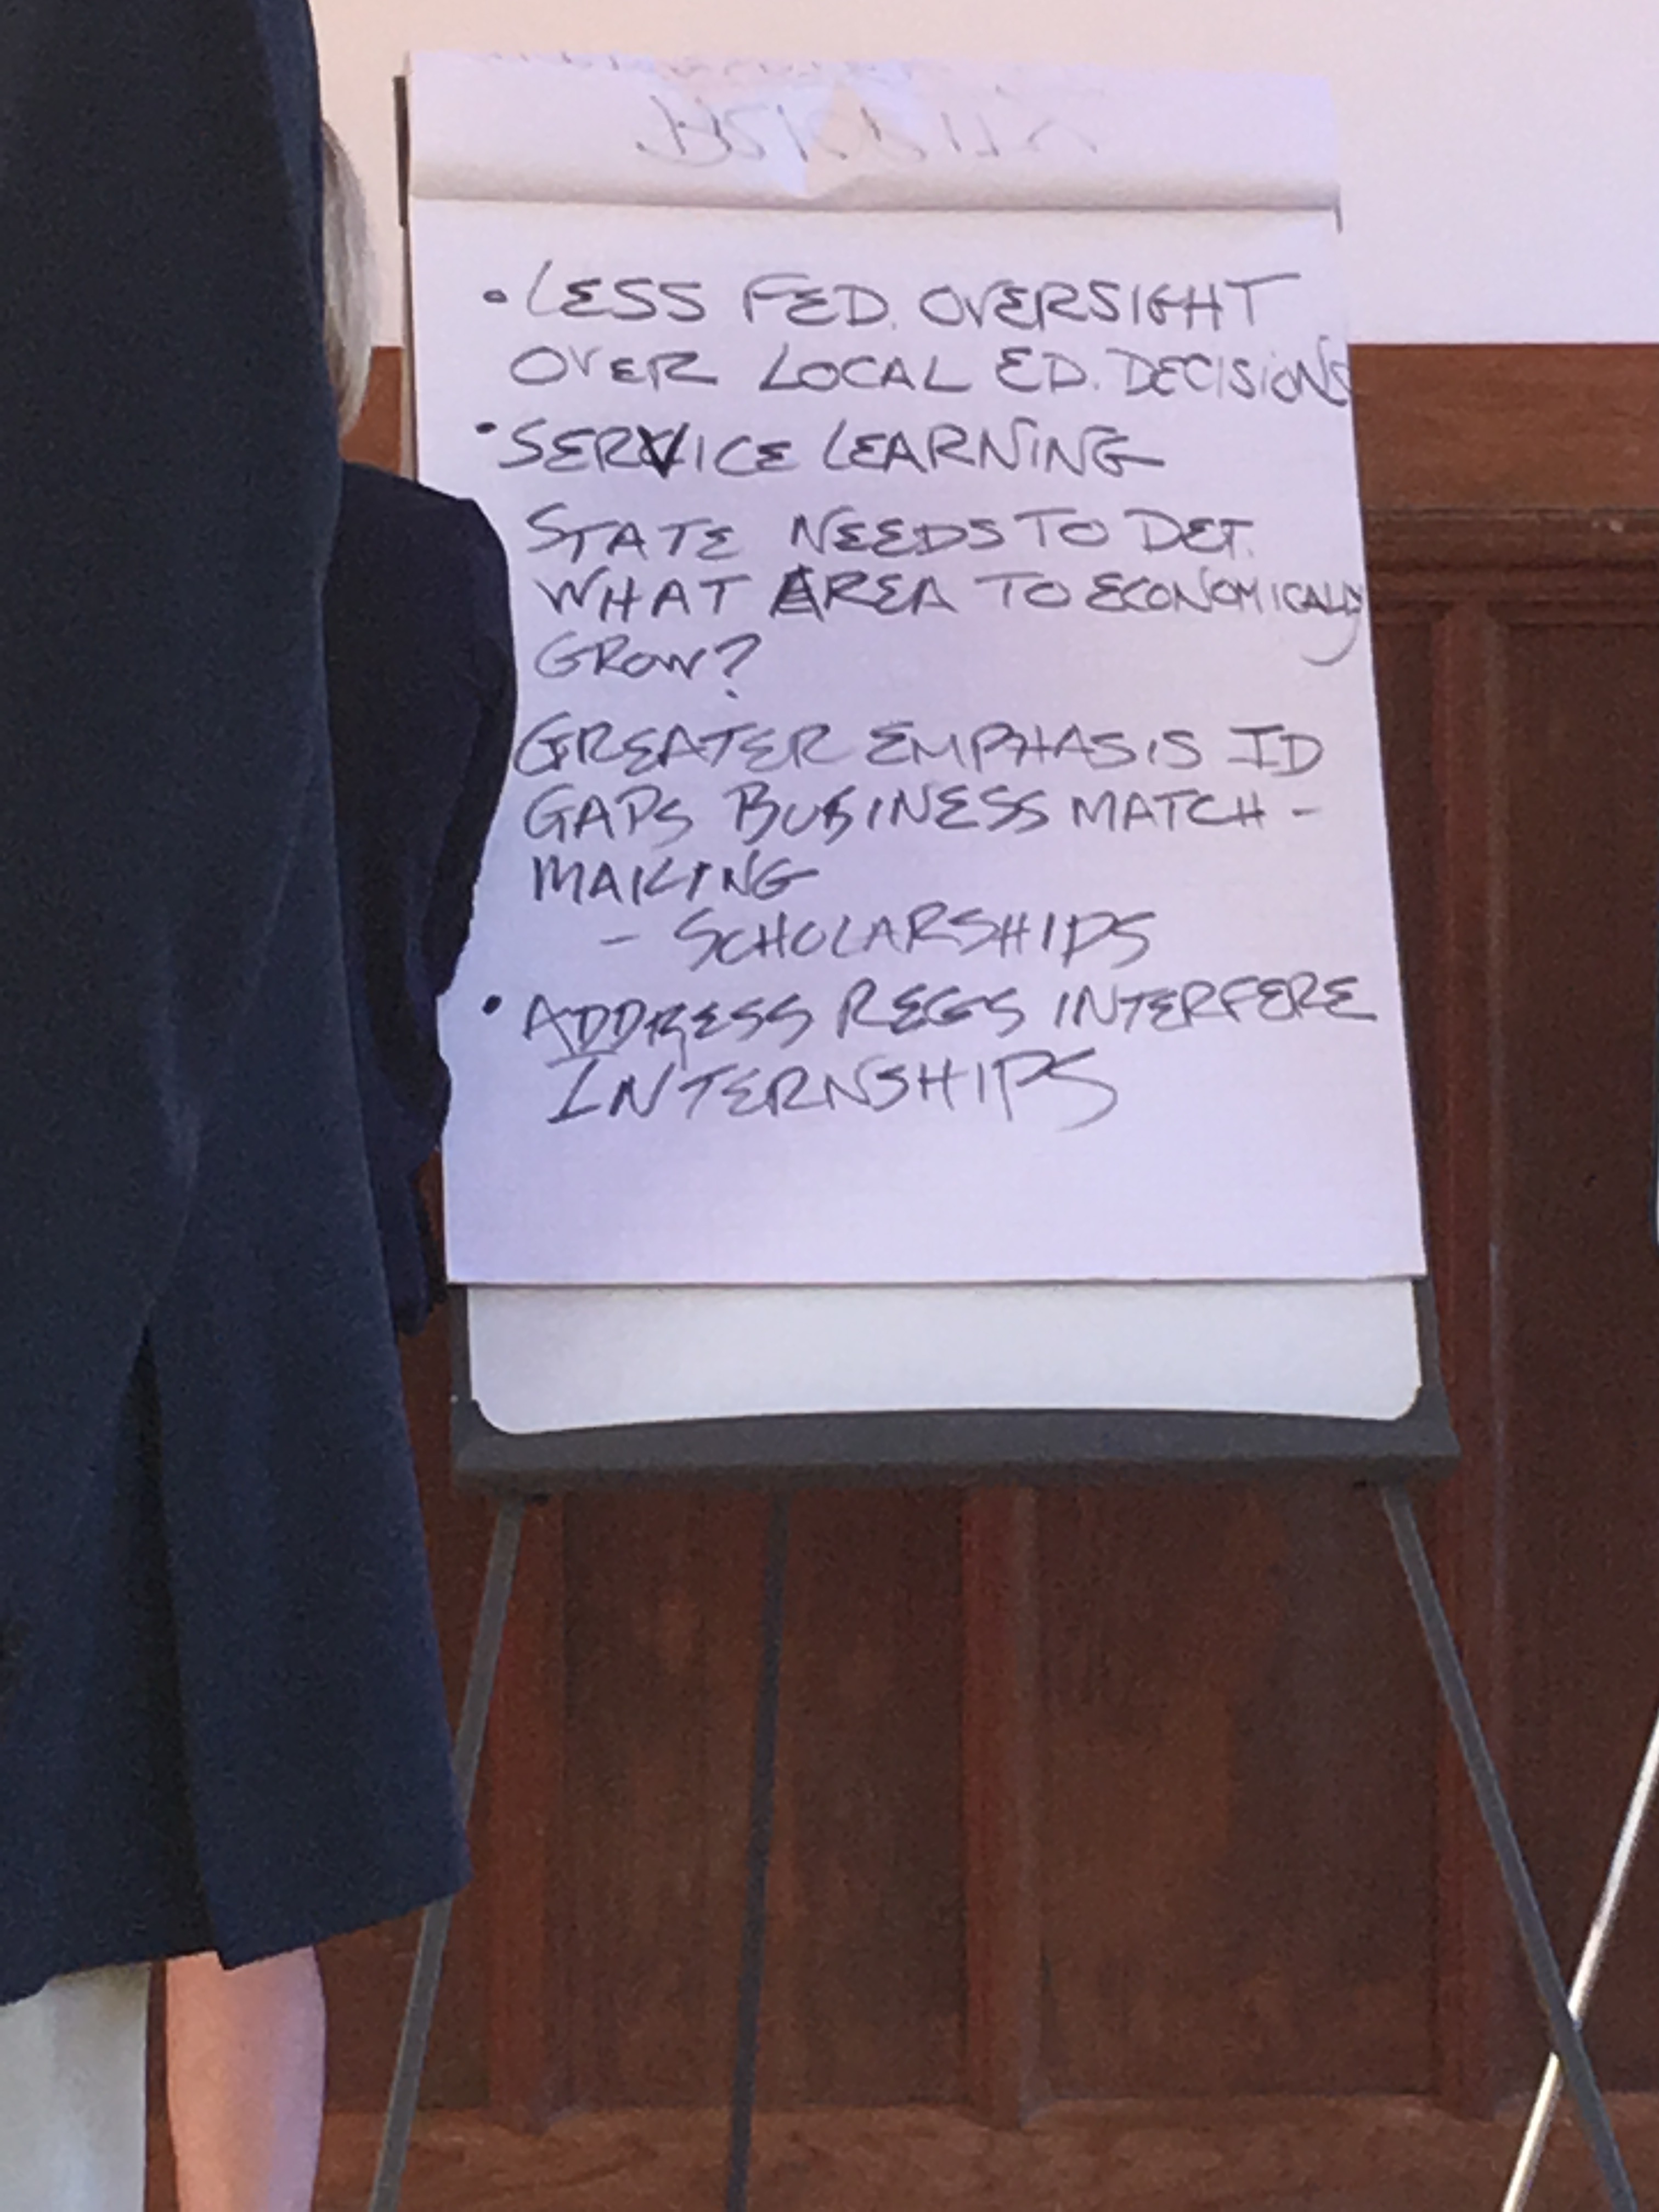 • LESS FED. OVERSIGHT
OVER LOCAL ED. DECISIONS
• SERVICE LEARNING
STATE NEEDS TO DET.
WHAT AREA TO ECONOMICALLY
GROW?
GREATER EMPHASIS ID
GAPS BUSINESS MATCH-
MAKING
- SCHOLARSHIPS
• ADDRESS REGS INTERFERE
INTERNSHIPS